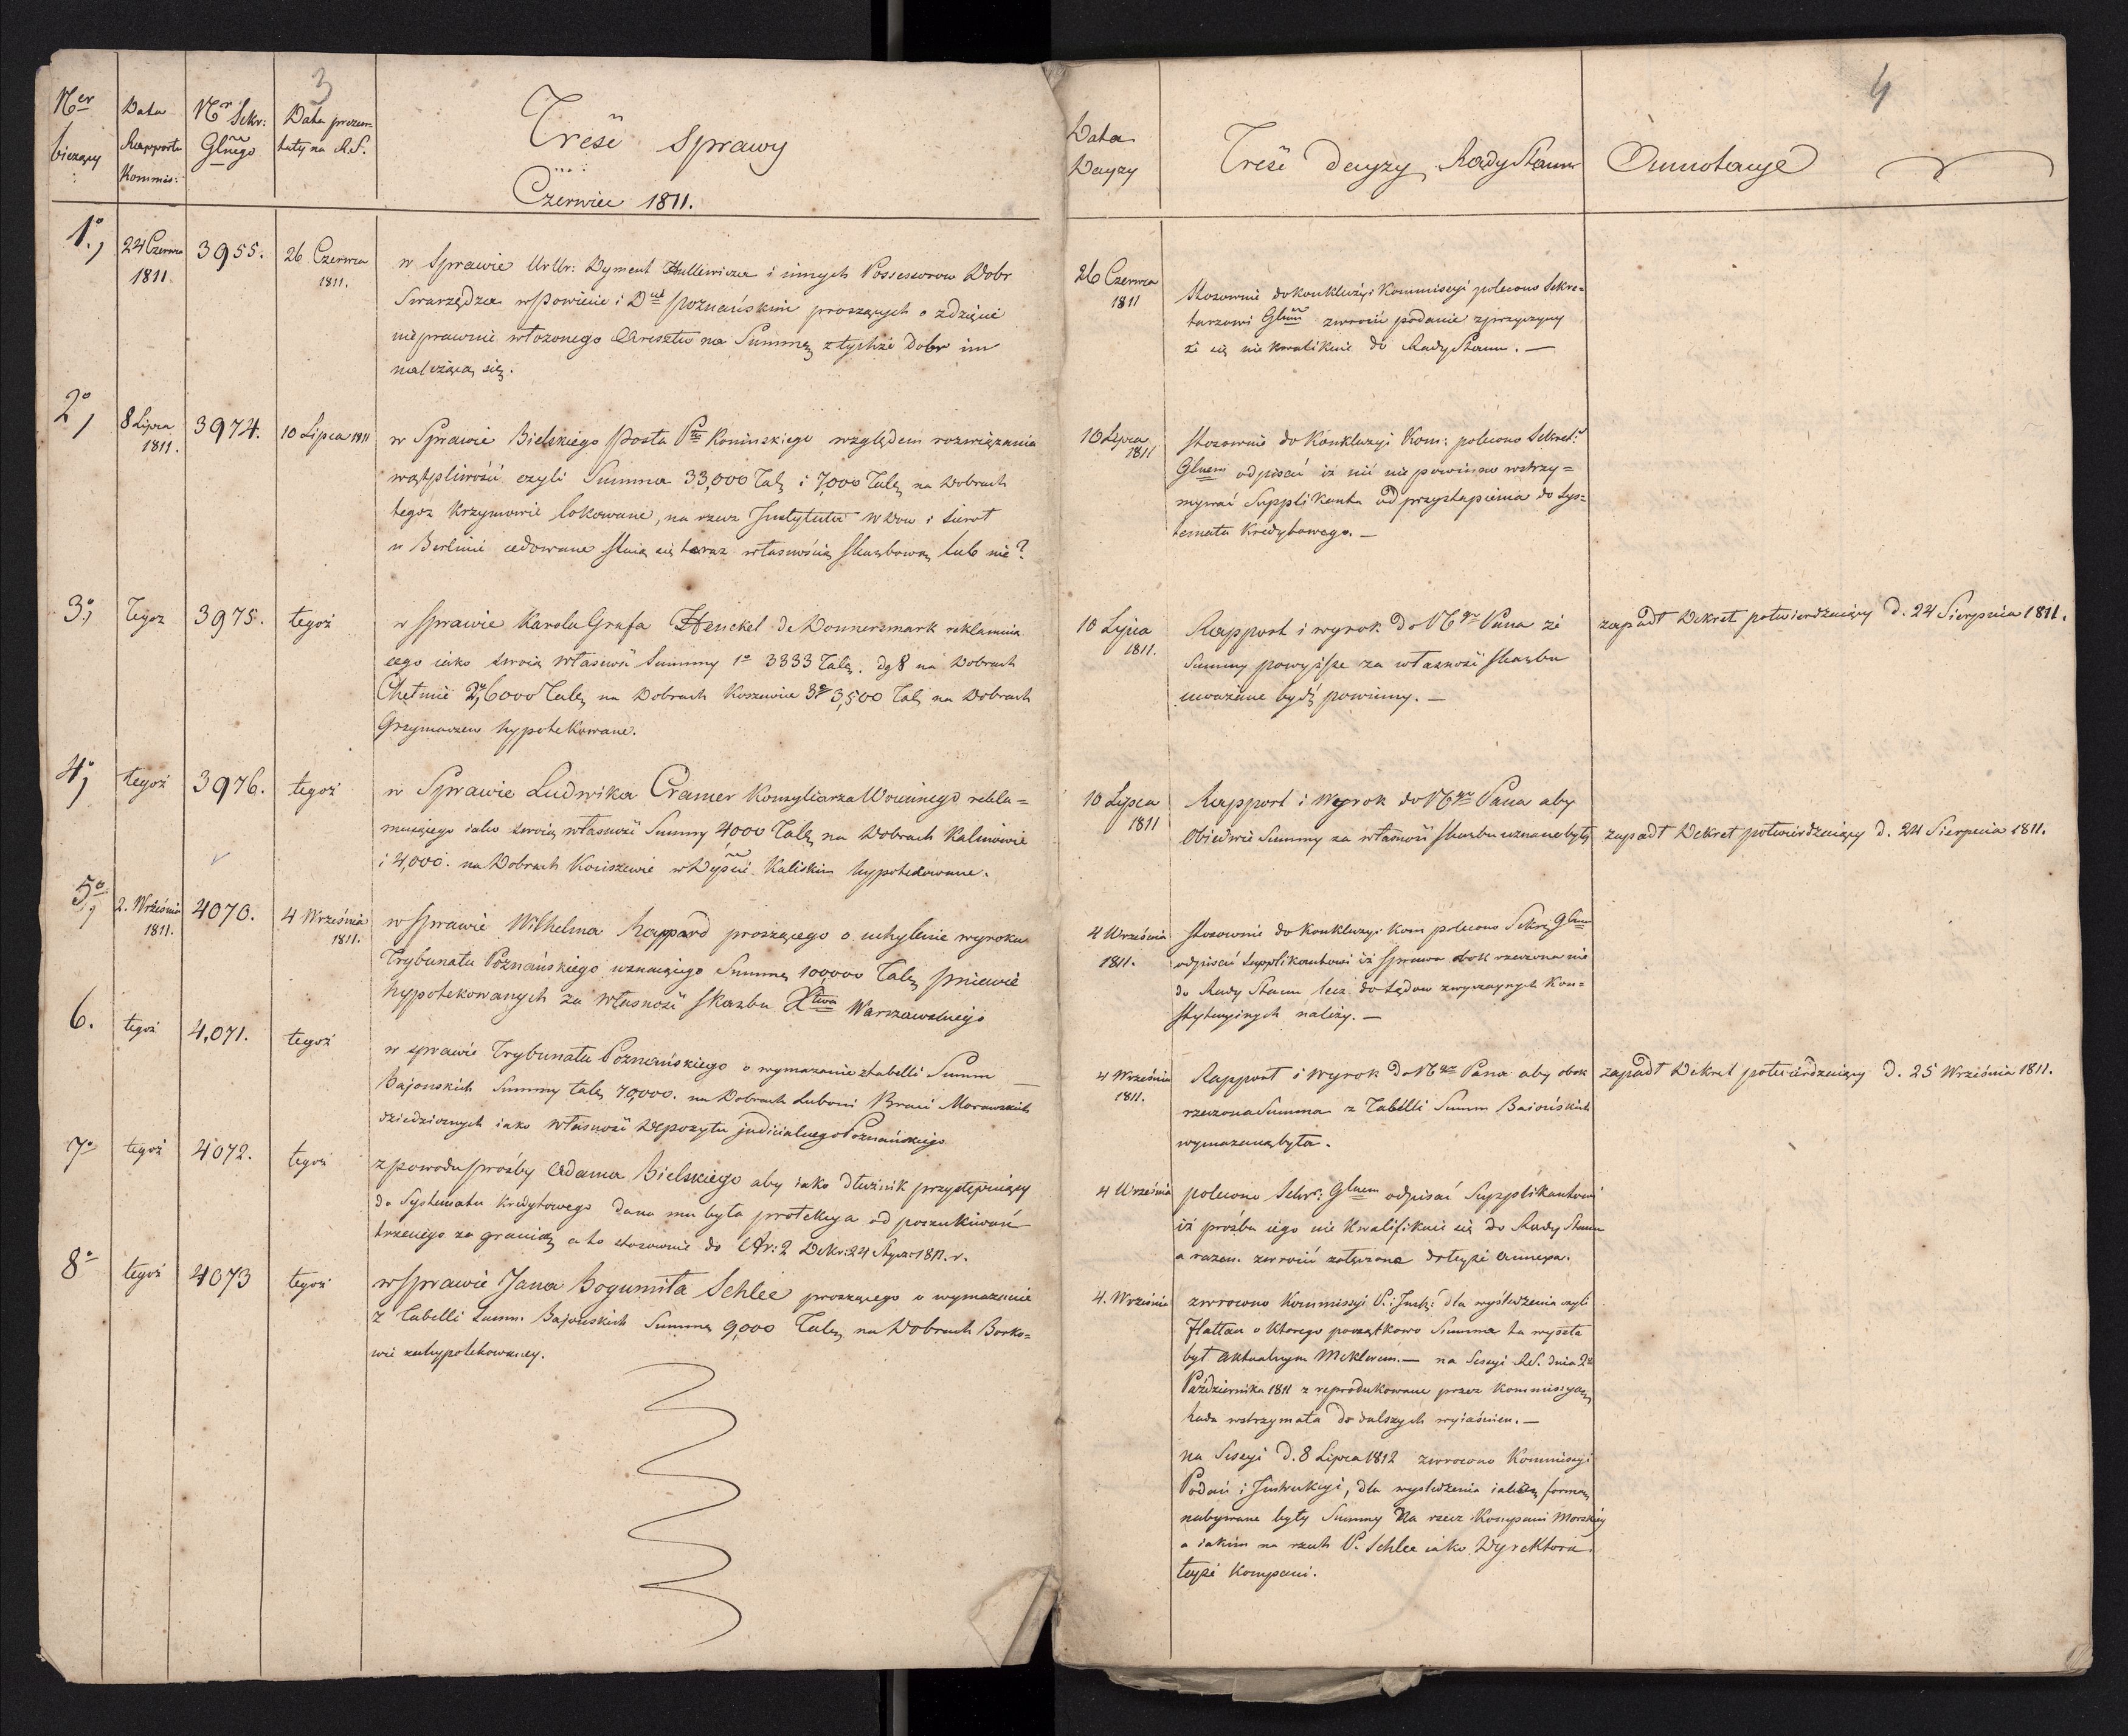 3
Ner bieżący
Data Rapportu Kommis:
Nr Sekr: Glnego
Data prezentaty na R.S.
Treść Sprawy
Czerwiec 1811.
1o,
24 Czerwca 1811
3955.
26 Czerwca 1811.
w Sprawie Ur Ur: Dyment Hulewicza i innych Possessorow Dobr
Swarzędza w Powiecie i D Poznańskim proszących o zdzięcie
nieprawnie włożonego Aresztu na Summę z tychże Dobr im
należącą się.
2o,
8 Lipca 1811.
3974.
10 Lipca 1811
w Sprawie Bielskiego Posła Ptu Konińskiego względem rozwiązania
wątpliwości czyli Summa 33,000 Tal, i 7,000 Tal, na Dobrach
tegoz Krzymowie lokowane, na rzecz Instytutu Wdow i Sierot
w Berlinie cedowane staią się teraz własnością Skarbową lub nie?
3o,
Tegoz
3975.
tegoż
w Sprawie Karola Grafa Henckel de Donnersmark reklamuią
cego iako swoią własność Summy 1o 3333 Tal. dg 8 na Dobrach
Chełmie 2o, 6000 Tal, na Dobrach Koszewice 3o 3,500 Tal, na Dobrach
Grzymaczew hypotekowane.
4o,
tegoż
3976.
tegoż
w Sprawie Ludwika Cramer Konsyliarza Woiennego rekla=
muiącego iako swoią własność Summy 4000 Tal, na Dobrach Kalinowie
i 4,000. na Dobrach Kociszewie w Dep Kaliskim hypotekowane.
5o,
2. Września 1811.
4070.
4 Września 1811.
w Sprawie Wilhelma Rappard proszącego o uchylenie wyroku
Trybunału Poznańskiego uznaiącego Summę 100000 Tal, Pniewie
hypotekowanych za własność Skarbu Xtwa Warszawskiego
6.
tegoż
4,071.
tegoż
w sprawie Trybunału Poznańskiego o wymazanie z tabelli Summ
Bajońskich Summy tal, 70,000. na Dobrach Luboni Braci Morawskich
dziedzicznych iako własność Depozytu judicialnego Poznańskiego
7o
tegoż
4072.
tegoż
z powodu prośby Adama Bielskiego aby iako dłużnik przystępuiący
do Systematu Kredytowego dana mu była protekcya od poszukiwań
trzeciego za granicą a to stosownie do Ar: 2 Dekr: 24 Stycz: 1811. r.
8o
tegoż
4073
tegoż
w Sprawie Jana Bogumiła Schlee proszącego o wymazanie
z Tabelli Summ. Bajońskich Summy 9,000 Tal, na Dobrach Borko=
wie zahypotekowaney.
4
Data Decyzy
Treść decyzy Rady Stanu
Annotacye
26 Czerwca 1811
Stosownie do konkluzyi Kommissyi polecono Sekre=
tarzowi Glnu zwrocić podanie z przyczyny
że się nie kwalifikuie do Rady Stanu. —
10 Lipca 1811
Stosownie do Konkluzyi Kom: polecono Sekret:
Glnemu odpisać iż nic nie powinno wstrzy=
mywać Supplikanta od przystąpienia do Sys=
tematu Kredytowego. —
10 Lipca 1811.
Rapport i wyrok do Ngo Pana że
Summy powyższe za własność Skarbu
uważane bydź powinny. —
zapadł Dekret potwierdzaiący d. 24 Sierpnia 1811.
10 Lipca 1811
Rapport i Wyrok do Ngo Pana aby
Obiedwie Summy za własność Skarbu uznane były
zapadł Dekret potwierdzaiący d. 24 Sierpnia 1811.
4 Września 1811.
Stosownie do Konkluzyi Kom polecono Sekr, Glnu
odpisać Supplikantowi iż Sprawa obok rzeczona nie
do Rady Stanu lecz do Sądow zwyczaynych Kon=
stytucyinych należy. —
4 Września 1811.
Rapport i Wyrok do Ngo Pana aby obok
rzeczona Summa z Tabelli Summ Baiońskich
wymazaną była.
zapadł Dekret potwierdzaiący d. 25 Września 1811.
4 Września
polecono Sekr: Glnem odpisać Supplikantowi
iż prośba iego nie Kwalifikuie się do Rady Stanu
a razem zwrocić załączone do teyże annexa.
4. Września
zwrocono Kommissyi P. i Instr: dla wyśledzenia czyli
Flattau o ktorego początkowo Summa ta wyszła
był aktualnym Meklerem. — na Sessyi R.S. dnia 2
Października 1811 r reprodukowane przez Kommissyą,
Rada wstrzymała do dalszych wyiaśnien. —
na Sessyi d. 8 Lipca 1812 zwrocono Kommissyi
Podań i Instrukcyi, dla wyśledzenia iakową formą
nabywane były Summy na rzecz Kompani Morskiey
a iakim na rzecz P. Schlee iako Dyrektora
teyże Kompani.